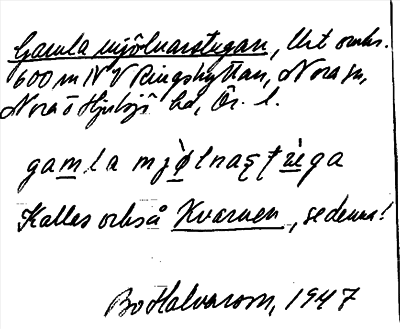 Gamla mjölnarstugan, lht omkr.
600 m NV Ringshyttan, Nora sn,
Nora o Hjulsjö hd, Ör. l.
gamla mjò̱lnaşṭùga
Kallas också Kvarnen, se denna!
Bo Halvarson, 1947